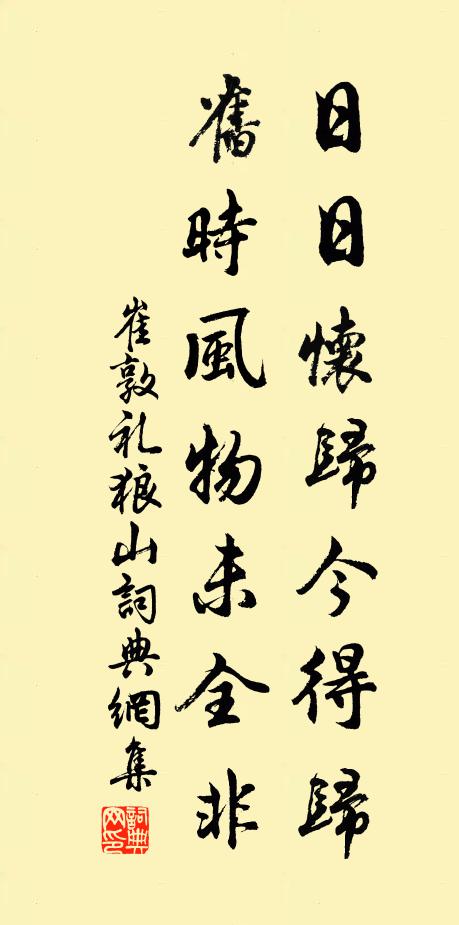 日日懷歸今得歸
舊時風物未全非
崔敦礼狼山詞典網集
詞典网印